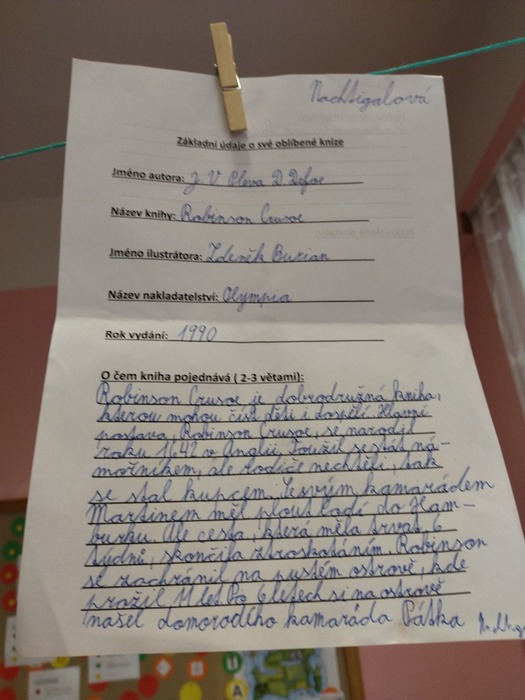 Nachtigalová
Základní údaje o své oblíbené knize
Jméno autora: J V Pleva D. Defoe
Název knihy: Robinson Crusoe
Jméno ilustrátora: Zdeněk Burian
Název nakladatelství: Olympia
Rok vydání: 1990
O čem kniha pojednává ( 2-3 větami):
Robinson Crusoe je dobrodružná kniha,
kterou mohou číst děti i dospělí. Hlavní
postava, Robinson Crusoe, se narodil
roku 1642 v Anglii. Toužil se stát ná-
mořníkem, ale rodiče nechtěli, tak
se stal kupcem. Se svým kamarádem
Martinem měl plout lodí do Ham-
burku. Ale cesta, která měla trvat 6
týdnů, skončila ztroskotáním. Robinson
se zachránil na pustém ostrově, kde
prožil 11 let. Po 6 letech si na ostrově
našel domorodého kamaráda Pátka